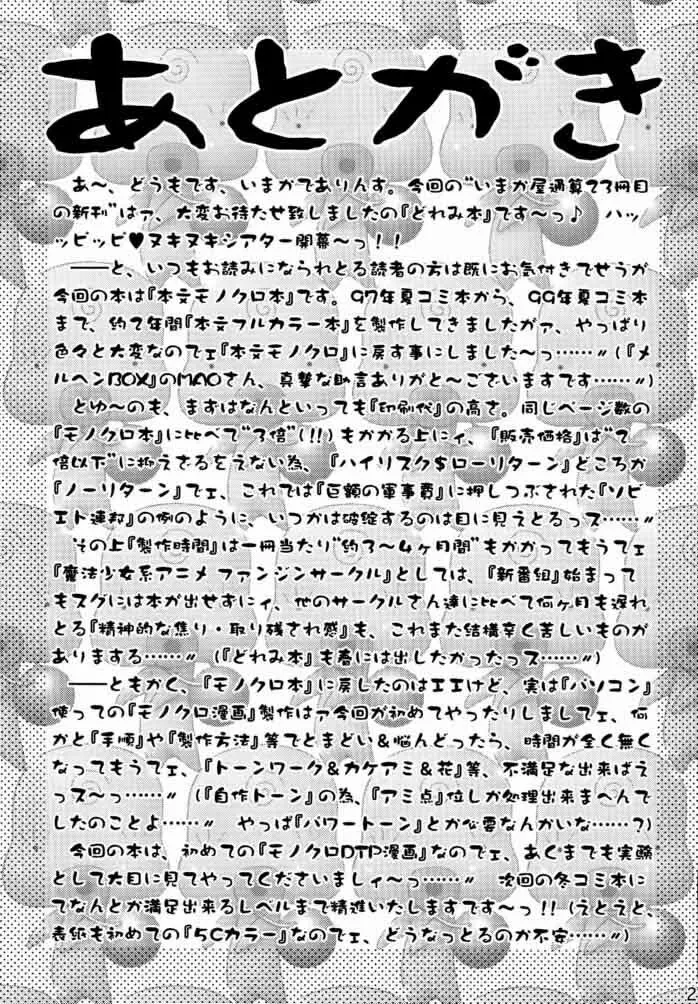 あとがき
あ～、どうもです、いまかでありんす。今回の"いまか屋通算23冊目
の新刊"はァ、大変お待たせ致しましたの『どれみ本』です～っ♪ ハッ
ッピッピ♥ヌキヌキシアター開幕～っ！！
――と、いつもお読みになられとる読者の方は既にお気付きでせうが
今回の本は『本文モノクロ本』です。97年夏コミ本から、99年夏コミ本
まで、約2年間『本文フルカラー本』を製作してきましたがァ、やっぱり
色々と大変なのでェ『本文モノクロ』に戻す事にしました～っ……〃(『メ
ルヘンBOX』のMAOさん、真摯な助言ありがと～ございますです……〃)
とゆ～のも、まずはなんといっても『印刷代』の高さ。同じページ数の
『モノクロ本』に比べて"3倍"(!!)もかかる上にィ、『販売価格』は"2
倍以下"に抑えざるをえない為、『ハイリスク$ローリターン』どころか
『ノーリターン』でェ、これでは『巨額の軍事費』に押しつぶされた『ソビ
エト連邦』の例のように、いつかは破綻するのは目に見えとるっス……〃
その上『製作時間』は一冊当たり"約3～4ヶ月間"もかかってもうてェ
『魔法少女系アニメ ファンジンサークル』としては、『新番組』始まって
もスグには本が出せずにィ、他のサークルさん達に比べて何ヶ月も遅れ
とる『精神的な焦り・取り残され感』も、これまた結構辛く苦しいものが
ありまする……〃 (『どれみ本』も春には出したかったっス……〃)
――ともかく、『モノクロ本』に戻したのはエエけど、実は『パソコン』
使っての『モノクロ漫画』製作はァ今回が初めてやったりしましてェ、何
かと『手順』や『製作方法』等でとまどい&悩んどったら、時間が全く無く
なってもうてェ、『トーンワーク&カケアミ&花』等、不満足な出来ばえ
っス～っ……〃 (『自作トーン』の為、『アミ点』位しか処理出来まへんで
したのことよ……〃 やっぱ『パワートーン』とか必要なんかいな……？)
今回の本は、初めての『モノクロDTP漫画』なのでェ、あくまでも実験
として大目に見てやってくださいましィ～っ……〃 次回の冬コミ本に
てなんとか満足出来るレベルまで精進いたしますです～っ！！(えとえと、
表紙も初めての『5Cカラー』なのでェ、どうなっとるのか不安……〃)
2